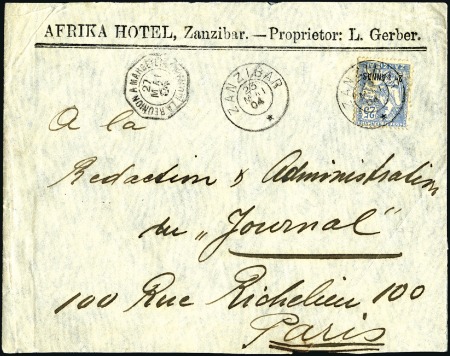 AFRIKA HOTEL, Zanzibar.—Proprietor: L. Gerber.
LA REUNION A MARSEILLE
27
MAI
04
ZANZIBAR
26
04
ZANZIBAR
04
2½ ANNAS
25
A la
Redaction & Administration
du „Journal"
100 Rue Richelieu 100
Paris